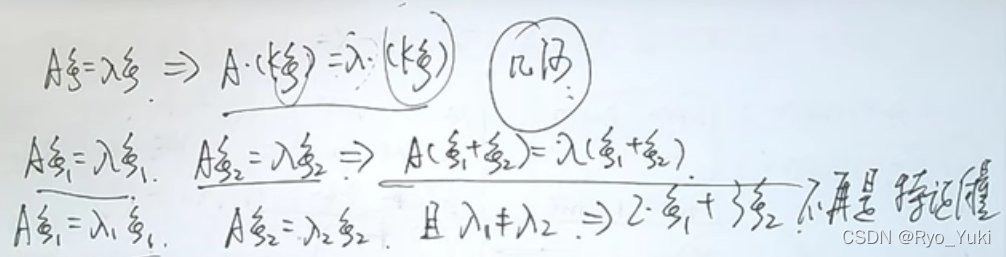 Aξ=λξ. ⇒ A·(kξ)=λ·(kξ) 几何:
Aξ₁=λξ₁. Aξ₂=λξ₂ ⇒ A(ξ₁+ξ₂)=λ(ξ₁+ξ₂).
Aξ₁=λ₁ξ₁. Aξ₂=λ₂ξ₂. 且 λ₁≠λ₂ ⇒ 2·ξ₁+3ξ₂ 不再是 特征向量
CSDN @Ryo_Yuki